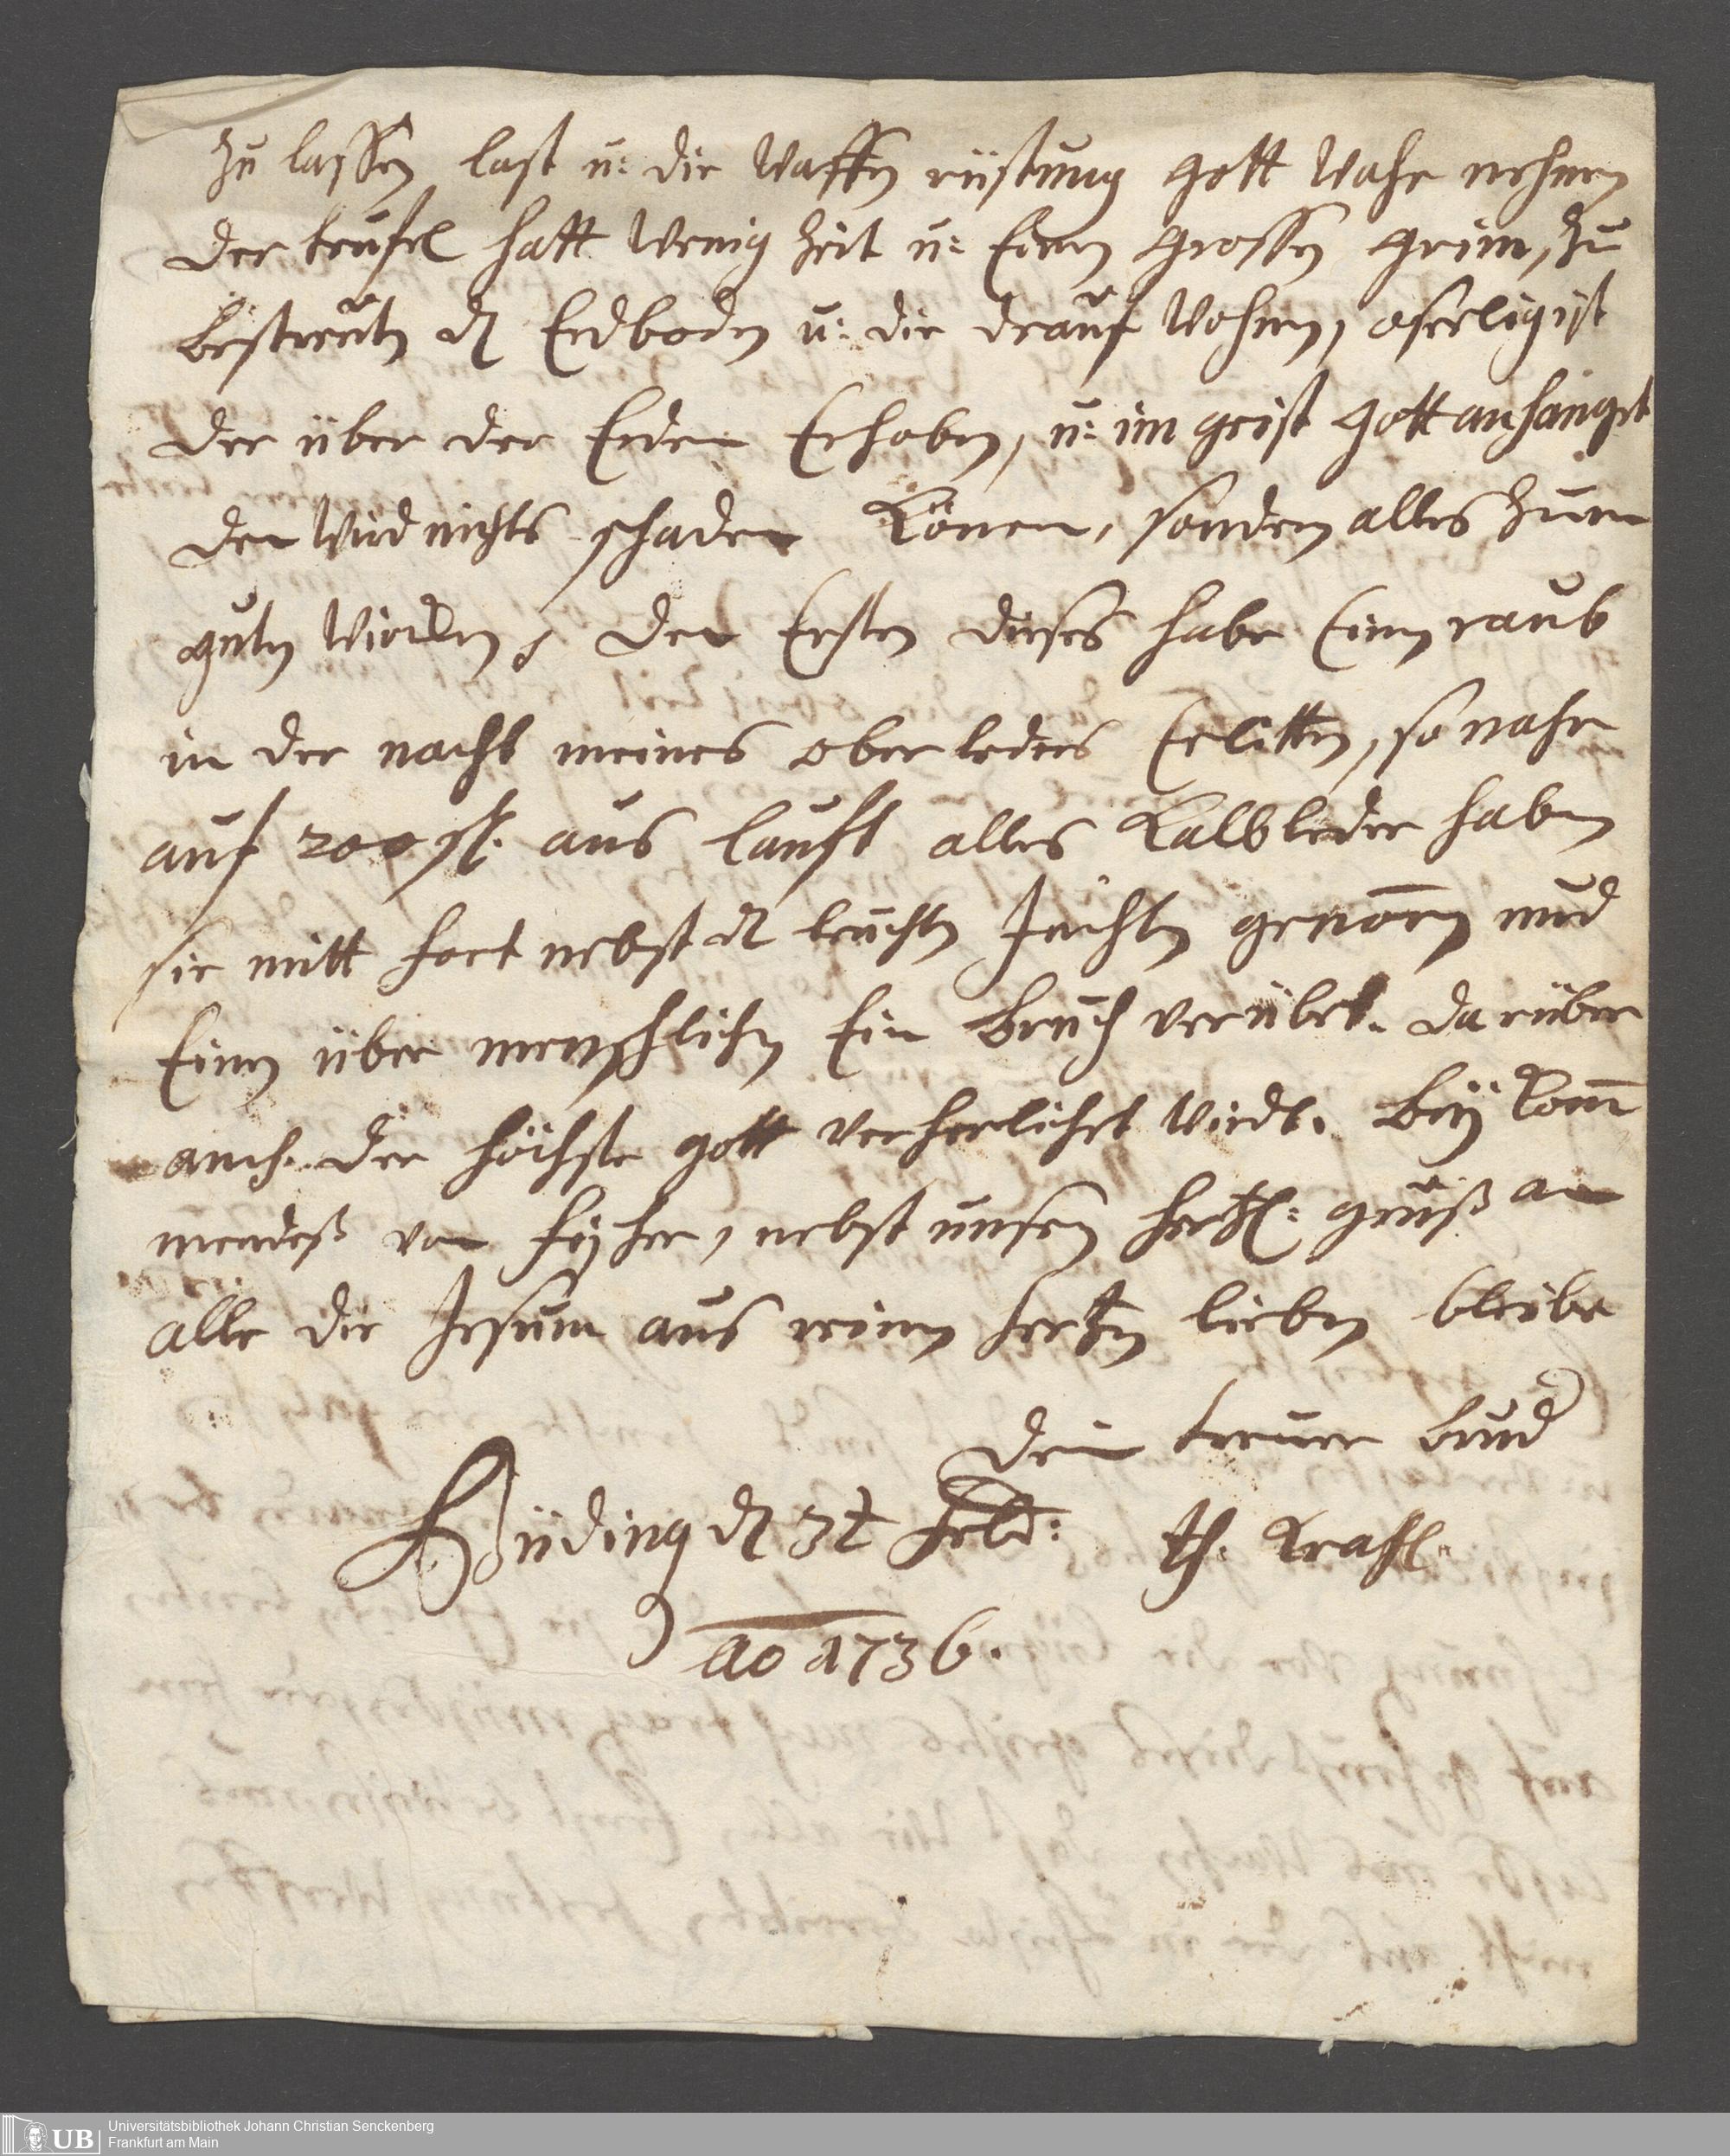 zu lassen last u: die Waffen rüstung gott Wahr nehmen
der teufel hatt wenig zeit u: Einen grossen grim, zu
bestreiten dn Erdboden u: die drauf Wohnen, o seelig ist
der über der Erden Erhoben, u: im geist gott anhänget
den wird nichts schaden Könen, sondern alles zum
guten Wircken, den Ersten dieses habe Einen raub
in der nacht meines ober leders Erlitten, so nahe
auf 200 fl. aus lauft alles Kalbleder haben
sie mitt fort nebst dn Juchten genomen und
Einen über menschlichen Ein bruch verübet. darüber
auch der höchste gott verherlichet wirdt. bey kom
mendeß von, nebst unsern hertzl: gruß an
alle die Jesum aus reinen hertzen lieben bleibe
dein treuer brud
Büding dn 3t Feb:
th. Krafft.
Ao 1736.
UB
Universitätsbibliothek Johann Christian Senckenberg
Frankfurt am Main